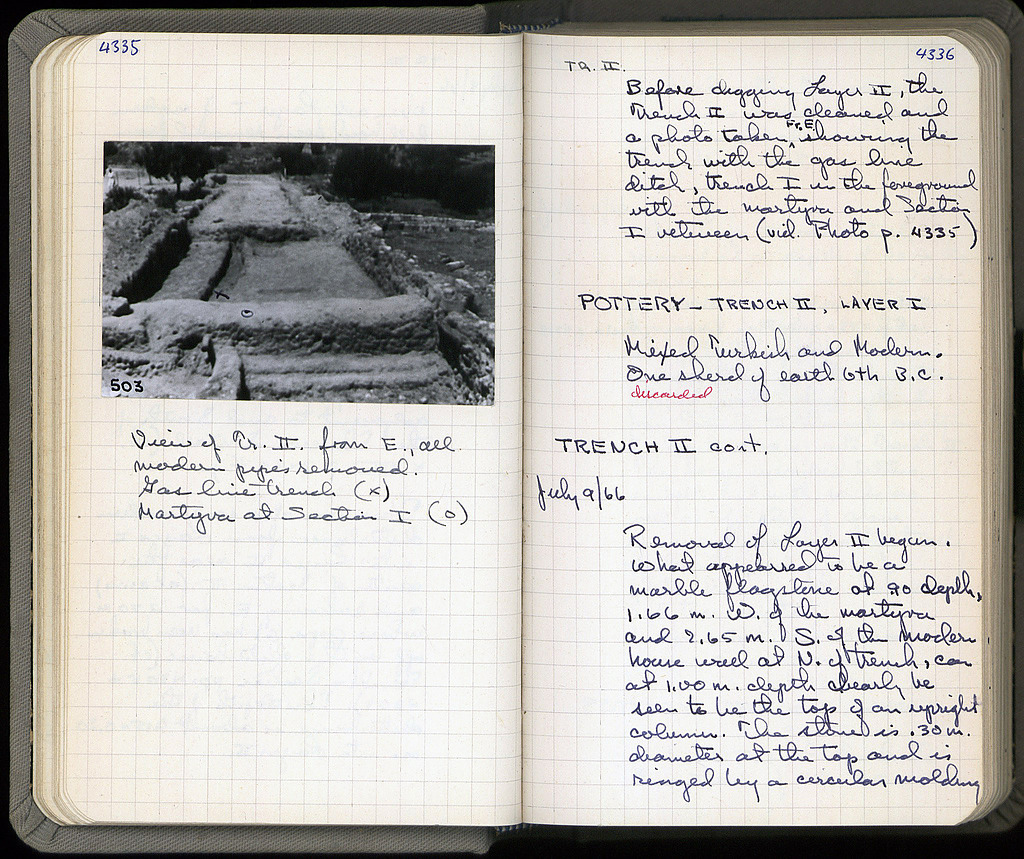 4335
503
View of Tr. II. from E., all
modern pipes removed.
Gas line trench (x)
Martyra at Section I (o)
4336
TR. II.
Before digging Layer II, the
Trench II was cleaned and
a photo taken Fr. E. showing the
trench with the gas line
ditch, trench I in the foreground
with the martyra and Section
I between (vid. Photo p. 4335)
POTTERY – TRENCH II, LAYER I
Mixed Turkish and Modern.
One sherd of 6th B.C.
discarded
TRENCH II cont.
July 9/66
Removal of Layer II begun.
What appeared to be a
marble flagstone at .90 depth,
1.66 m. W. of the martyra
and 2.65 m. S. of the modern
house wall at N. of trench, can
at 1.00 m. depth clearly be
seen to be the top of an upright
column. The stone is .30 m.
diameter at the top and is
ringed by a circular molding